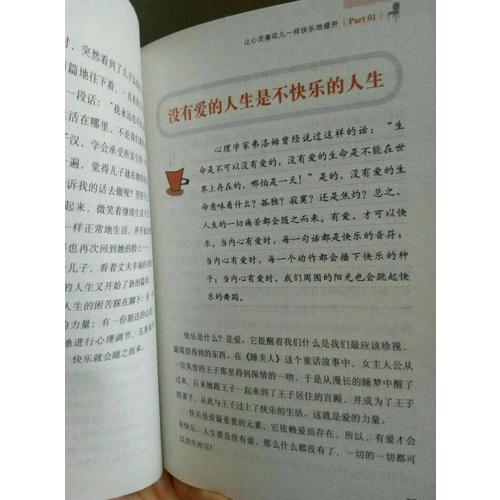 时，突然看到了儿子
篇地往下看，一直看
一段话：“我永远也
生活在哪里，不论我们
子汉，学会承受所发生
一遍，觉得儿子就在
诉我的话去做呢？坚持
起来，微笑着继续生活
一样正常地生活，虽
也再次回到她的脸上一
儿子，看着丈夫幸福的
的人生又开始了新的篇章
人生的困苦踩在脚下；有
的力量；有一份豁达的心
地进行心理调节，凡事
快乐就会随之而来。
让心灵像花儿一样快乐地盛开 Part 01
没有爱的人生是不快乐的人生
心理学家弗洛姆曾经说过这样的话：“生
命是不可以没有爱的，没有爱的生命是不能在世
界上存在的，哪怕是一天！”是的，没有爱的生
命意味着什么？孤独？寂寞？还是焦灼？总之，
人生的一切痛苦都会随之而来。有爱，才可以快
乐，当内心有爱时，每一句话都是快乐的音符；
当内心有爱时，每一个动作都会播下快乐的种
子；当内心有爱时，我们周围的阳光也会跳起快
乐的舞蹈。
快乐是什么？是爱。它提醒着我们什么是我们最应该珍视、
最渴望得到的东西。在《睡美人》这个童话故事中，女主人公从
一位英俊的王子那里得到深情的一吻，于是从漫长的睡梦中醒了
过来，后来她跟王子一起来到了王子居住的宫殿，并成为了王子
的妻子，从此与王子过上了快乐的生活。这就是爱的力量。
快乐是爱最重要的元素，它依赖爱而存在。所以，有爱才会
有快乐。人生要是没有爱，那么什么都没有了，一切的一切都可
以消失殆尽！